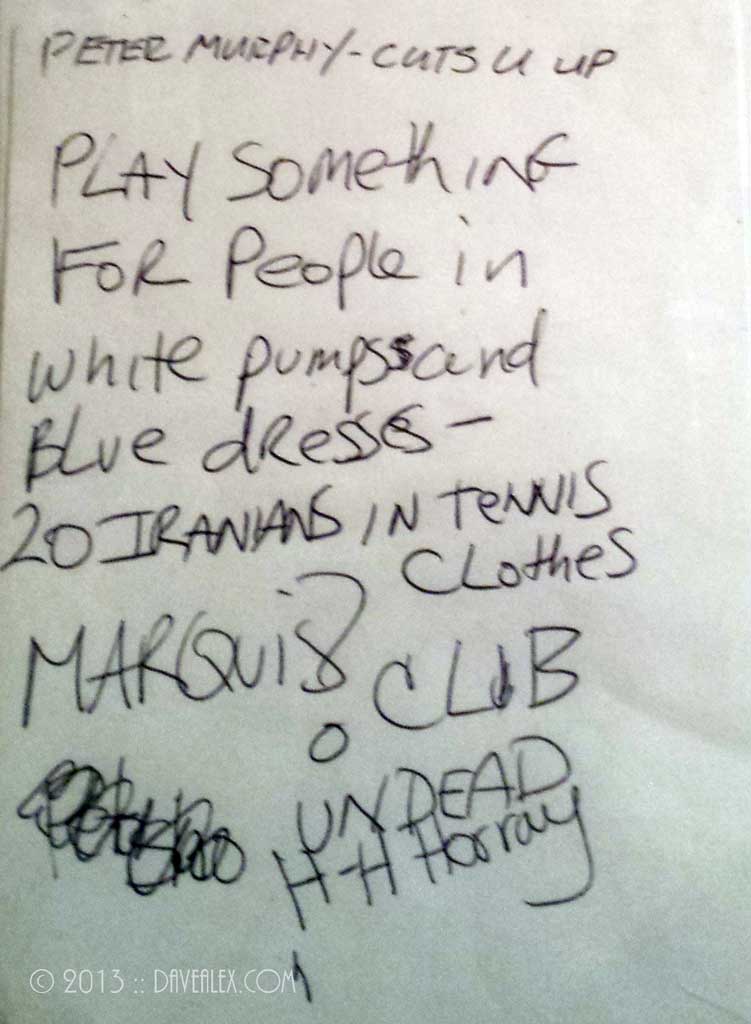 PETER MURPHY - CUTS U UP
PLAY Something
FOR People in
white pumps and
BLue dresses -
20 IRANIANS IN TENNIS
CLothes
MARQUIS CLUB
UNDEAD
H-H Horray
© 2013 :: DAVEALEX.COM